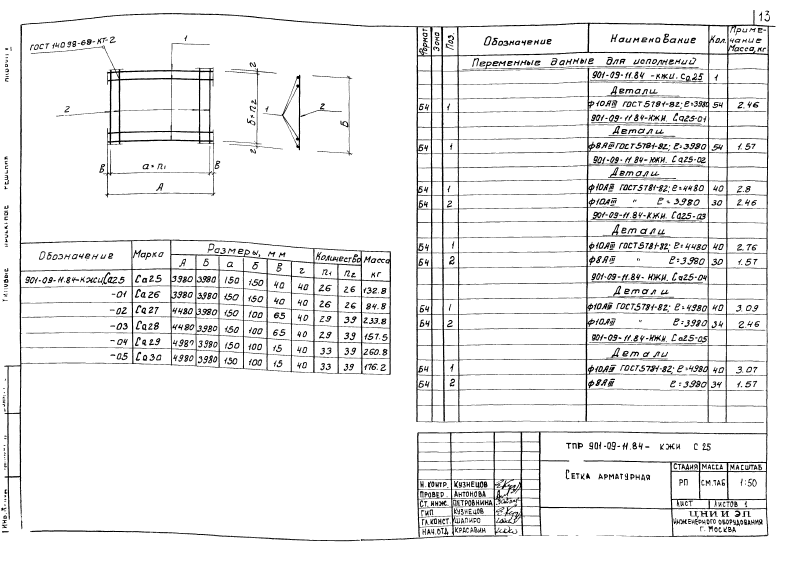 13
ГОСТ 14098-68-КТ-2
1
2
1
2
г
Б=n₂
г
Б
в
а=n₁
в
А
Обозначение Марка Размеры, мм Количество Масса кг
А Б а б в г n₁ n₂
901-09-11.84-КЖИ Са25 Са25 3980 3980 150 150 40 40 26 26 132.8
-01 Са26 3980 3980 150 150 40 40 26 26 84.8
-02 Са27 4480 3980 150 100 65 40 29 39 233.8
-03 Са28 4480 3980 150 100 65 40 29 39 157.5
-04 Са29 4987 3980 150 100 15 40 33 39 260.8
-05 Са30 4980 3980 150 100 15 40 33 39 176.2
Формат Зона Поз. Обозначение Наименование Кол. Примечание Масса, кг
Переменные данные для исполнений
901-09-11.84 -КЖИ. Са25 1
Детали
Б4 1 ф10АIII ГОСТ 5781-82; ℓ=3980 54 2.46
901-09-11.84-КЖИ. Са25-01
Детали
Б4 1 ф8АIII ГОСТ 5781-82; ℓ=3980 54 1.57
901-09-11.84-КЖИ. Са25-02
Детали
Б4 1 ф10АIII ГОСТ 5781-82; ℓ=4480 40 2.8
Б4 2 ф10АIII " ℓ=3980 30 2.46
901-09-11.84-КЖИ. Са25-03
Детали
Б4 1 ф10АIII ГОСТ 5781-82; ℓ=4480 40 2.76
Б4 2 ф8АIII " ℓ=3980 30 1.57
901-09-11.84-КЖИ. Са25-04
Детали
Б4 1 ф10АIII ГОСТ 5781-82; ℓ=4980 40 3.09
Б4 2 ф10АIII " ℓ=3980 34 2.46
901-09-11.84-КЖИ. Са25-05
Детали
Б4 1 ф10АIII ГОСТ 5781-82; ℓ=4980 40 3.07
Б4 2 ф8АIII " ℓ=3980 34 1.57
ТПР 901-09-11.84- КЖИ С 25
Сетка арматурная
Стадия Масса Масштаб
РП См.таб 1:50
Лист Листов 1
ЦНИИЭП
инженерного оборудования
г. Москва
Н. контр. Кузнецов
Провер. Антонова
Ст. инж. Петровнина
ГИП Кузнецов
Гл.конст. Шапиро
Нач.отд. Красавин
Типовые проектные решения